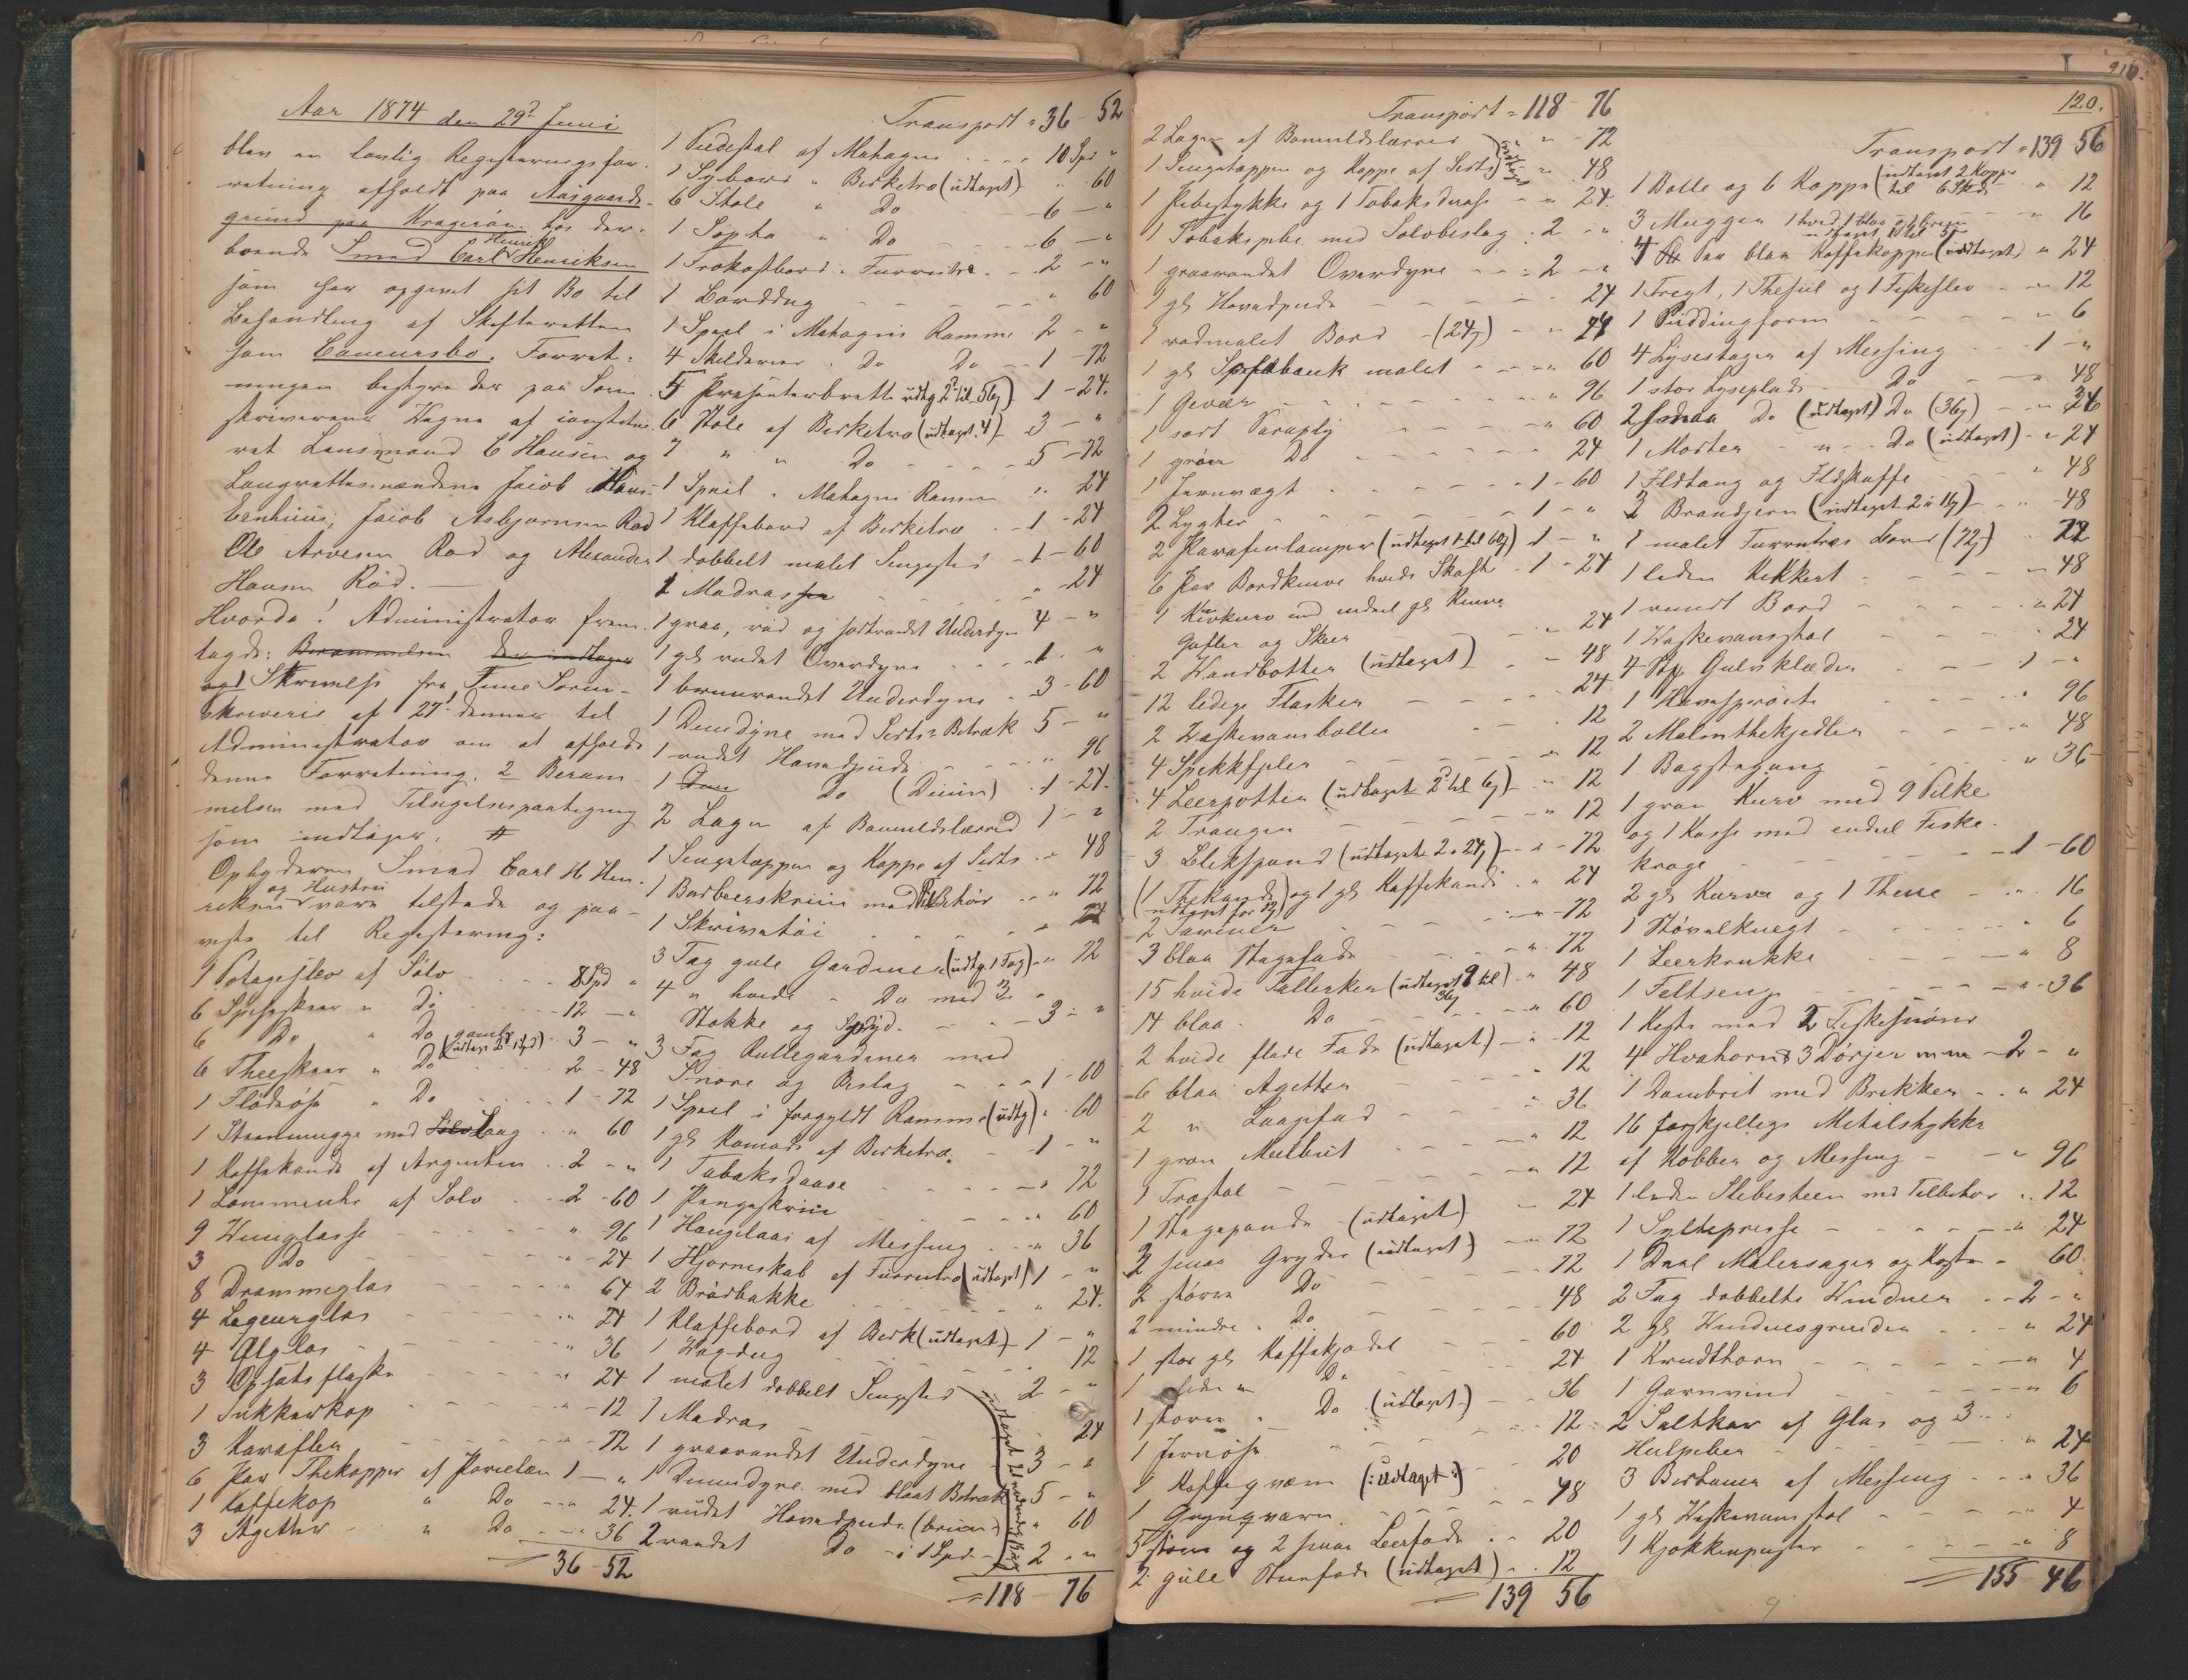 Aar 1874 den 29de Juni
blev en lovlig Registreringsfor-
retning afholdt paa Aasgaards-
grund paa Kragerøen hos der-
boende Smed Carl Henrik Henriksen
som har opgivet sit Bo til
Behandling af Skifteretten
som Concursbo. Forret-
ningen bestyredes paa Soren-
skriverens Vegne af constitue-
ret Lensmand C Hansen og
Laugrettesmændene Jacob Hans-
, Jacob Asbjørnsen Rød
Ole Arvesen Rød og Alexander
Hansen Rød.
Hvorda! Administrator frem-
lagde: Berammelsen der indtages
og 1 Skrivelse fra Soren-
skriveren af 27de dennes til
Administrator om at afholde
denne Forretning. 2 Beram-
melsen med Tilsigelsespaategning
som indtages. #
Opbyderen Smed Carl H Hen-
riksen og Hustru vare tilstede og paa-
viste til Registrering:
1 Potageslev af Sølv 8 Spd "
6 Spiseskeer " do 12 - "
6 Do " Do gamle (udtaget 2 ) 3 - "
6 Theeskeer " Do 2 - 48
1 Flødeøse " Do 1 - 72
1 Steenmugge med Sølv Laag " 60
1 Kaffekande af Argentan 2 - "
1 Lommeuhr af Sølv 2 - 60
9 Viinglasse " 96
3 Do " 24
8 Drammeglas " 64
4 Liqeurglas " 24
4 Ølglas " 36
3 Opsatsflaske " 24
1 Sukkerkop " 12
3 Karafler " 72
6 Par Thekopper af Porcelæn 1 - "
1 Kaffekop " Do " 24.
3 Asjetter " Do " 36
36 - 52
Transport = 36 - 52
1 Piedestal af Mahagni 10 Spd "
1 Sybord " Birketræ (udtaget) " 60
6 Stole " Do 6 - "
1 Sopha " Do 6 - "
1 Frokostbord " Furretræ 2 - "
1 Borddug " 60
1 Speil i Mahagni Ramme 2 - "
4 Skilderier " Do Do 1 - 72
5 Presenterbrette udtg 2de til 56ß) 1 - 24.
6 Stole af Birketræ (udtaget 4) 3 - "
7 " " Do 5 - 72
1 Speil " Mahagni Ramme " 24
1 Klaffebord af Birketræ 1 - 24
1 dobbelt malet Sengested 1 - 60
1 Madrasser " 24
1 graa, rød og sortrandet Underdyne 4 - "
1 gl rudet Overdyne 1 "
1 brunrandet Underdyne 3 - 60
1 Duundyne med Sirts Betræk 5 - "
1 rudet Hovedpude " 96
1 Duu Do (Duun) 1 - 24.
2 Lagen af Bomuldslærred 1 - "
1 Sengetæppe og Kappe af Sirts " 48
1 Barbeerskriin med Tilbehør " 72
1 Skrivetøi " 24
3 Fag gule Gardiner (udtg. 1 Fag) " 72
4 " hvide " Do med 3
Stokke og Spyd. 3 - "
3 Fag Rullegardiner med
Snore og Beslag 1 - 60
1 Speil i forgyldt Ramme (udtg) " 60
1 gl Komode af Birketræ. 1 - "
1 Tobaksdaase " 72
1 Pengeskriin " 60
1 Hængelaas af Messing " 36
1 Hjørneskab af Furretræ (udtaget) 1 - "
2 Brødbakke " 24.
1 Klaffebord af Berk (udtaget) 1 - "
1 Voxdug " 12
1 malet dobbelt Sengested 2 - "
1 Madras 24
1 graarandet Underdyne 3 - "
1 Duundyne med blaat Betræk 5 - "
1 rudet Hovedpude (bruun) " 60
2 randet Do i 1 Spd. 2 "
= 118 - 76
Transport = 118 - 76
2 Lagen af Bomuldslærred " 72
1 Sengetæppe og Kappe af Sirts (udtaget) " 48
1 Pibestykke og 1 Tobaksdaase " 24.
1 Tobakspibe med Sølvbeslag 2 - "
1 graarandet Overdyne 2 - "
1 gl Hovedpude 24
1 rødmalet Bord (24ß) " 24
1 gl Sofabænk malet " 60
1 Gevær " 96
1 sort Paraply " 60
1 grøn Do 24
1 Jernvægt 1 - 60
2 Lygter 1 - "
2 Parafinlamper (udtaget 1 til 60ß) 1 - "
6 Par Bordknive hvide Skaft 1 - 24
1 Knivkurv med endeel gl Knive
Gafler og Skeer " 24
2 Vandbøtter (udtaget) 48
12 ledige Flasker 24
2 Vaskevandsboller 12
4 Spekkfjeler " 12
4 Leerpotter (udtaget 2de til 6ß) " 12
2 Trauger " 12
3 Blikspand (udtaget 2 a 24ß) " 72
(1 Thekande) og 1 gl Kaffekande " 24
udtaget for 12ß
2 Tariner " 72
3 blaa Stegefade " 72
15 hvide Tallerkener (udtaget 9 til 36ß) " 48
14 blaa " Do " 60
2 hvide flade Fade (udtaget) " 12
6 blaa Asjetter 12
2 " Laagefad " 36
1 gran Mulbrit " 12
1 Træstol " 12
1 Stegepande (udtaget) 24
2 smaa Gryder (udtaget) " 72
2 større Do 72
2 mindre " Do 48
1 stor gl Kaffekjedel 60
1 liden " Do 24
1 større " Do (udtaget) 36
1 Jernøse " 12
1 Kaffeqværn (: udtaget :) 20
1 Grynqværn 48
5 store og 2 smaa Leerfade 20
2 gule Steenfade (udtaget) 12
139 56
120.
Transport = 139 56
1 Bolle og 6 Kopper (udtaget 2 Kopper til 6 Sk) " 12
3 Mugger 1 hvid 1 blaa og 1 bruun " 16
4 Par blaa Kaffekopper (udtaget) " 24
1 Tregt, 1 Thesiil og 1 Fiskeslev " 12
1 Puddingform " 6
4 Lysestager af Messing 1 - "
1 stor Lyseplade Do 48
2 smaa Do (udtaget) Do (36ß) " 36
1 Morter " Do (udtaget) " 24
1 Ildtang og Ildskuffe " 48
2 Brandjern (udtaget 2 a 16ß) " 48
1 malet Furretræs Bord (72ß) " 72
1 liden Kikkert " 48
1 rundt Bord " 24
1 Vaskevandsstol 24
4 Stk Gulvklæder 1 - "
1 Havesprøite " 96
2 Malmthekjedler " 48
1 Bagstegang " 36
1 gran Kurv med 9 Pilke
og 1 Kasse med endeel Fiske-
kroge 1 - 60
2 gl Kurve og 1 Thine " 16
1 Støvelknegt " 6
1 Leerkrukke " 8
1 Feltseng " 36
1 Kiste med 2 Fiskesnører
4 Hvahorn 3 Dørjer m m 2 - "
1 Dambret med Brikker " 24
16 forskjellige Metalstykker
af Kobber og Messing " 96
1 liden Slibesteen med Tilbehør " 12
1 Syltepresse " 24
1 Deel Malersager og Koste " 60
2 Fag dobbelte Vinduer 2 - "
2 gl Vinduesgrinder " 24
1 Krudthorn " 4
1 Garnvind " 6
2 Saltkar af Glas og 3
Hulpiber " 24
3 Bistauer af Messing " 36
1 gl Vaskevandsstol " 4
1 Kjøkkenpuster " 8
155 46